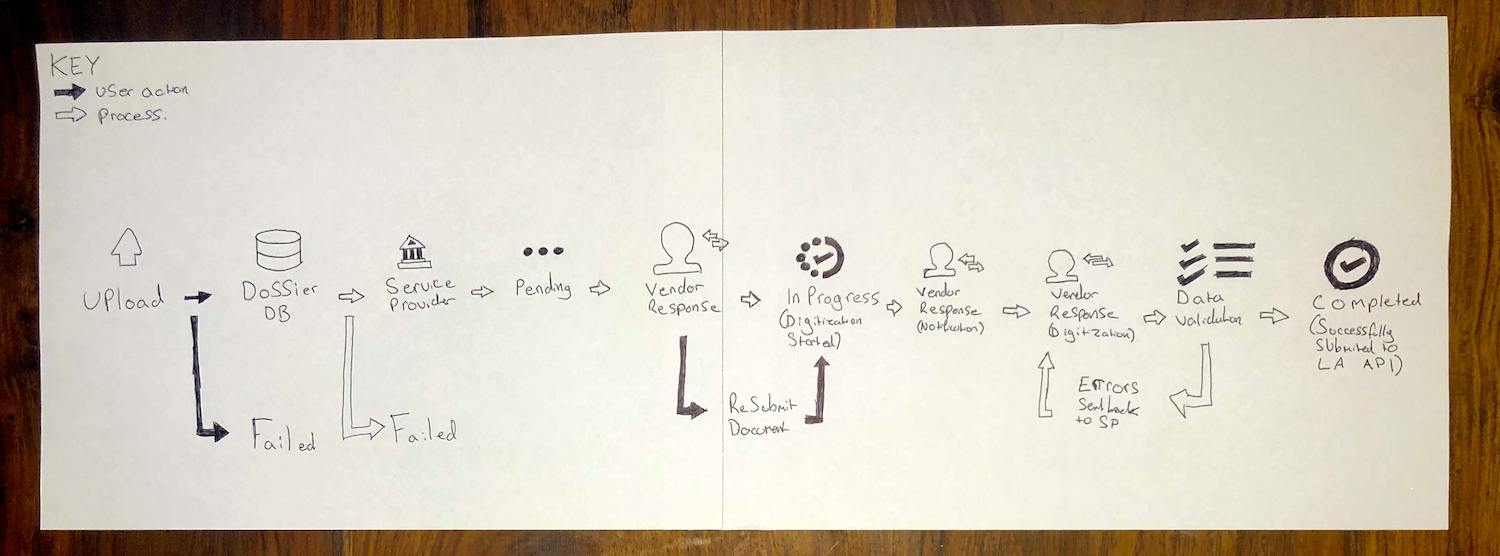 KEY
User action
process.
Upload
DoSSier
DB
Service
Provider
Pending
Vendor
Response
In Progress
(Digitization
Started)
Vendor
Response
(Notification)
Vendor
Response
(Digitization)
Data
Validation
Completed
(Successfully
Submitted to
LA API)
Failed
Failed
ReSubmit
Document
Errors
Sent back
to SP